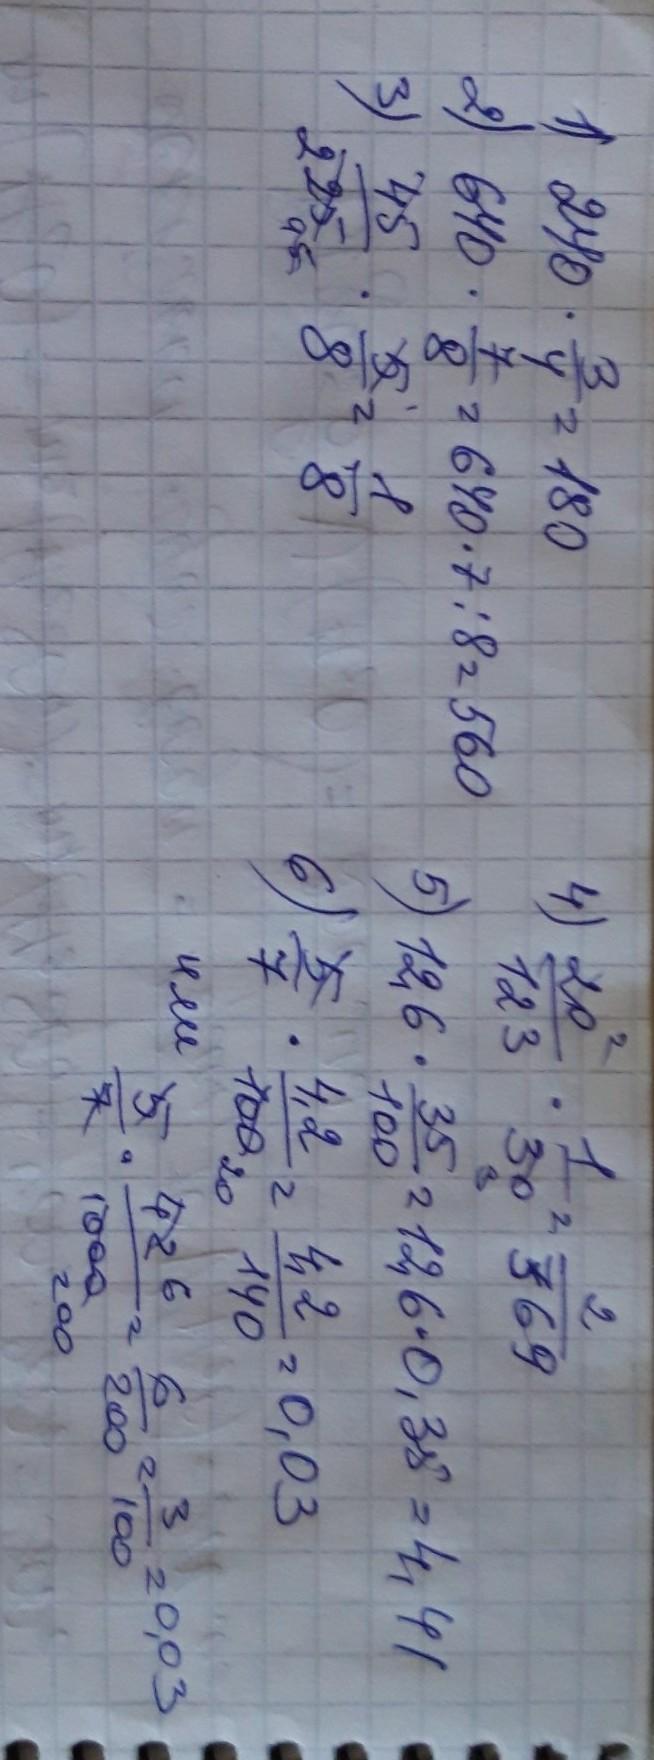 1) 240 · 3/4 = 180
2) 640 · 7/8 = 640 · 7 : 8 = 560
3) 45/225 45 · 5 1/8 = 1/8
4) 20 2/123 · 1/30 3 = 2/369
5) 12,6 · 35/100 = 12,6 · 0,35 = 4,41
6) 5/7 · 4,2/100 20 = 4,2/140 = 0,03
или 5/7 · 42 6/1000 200 = 6/200 = 3/100 = 0,03